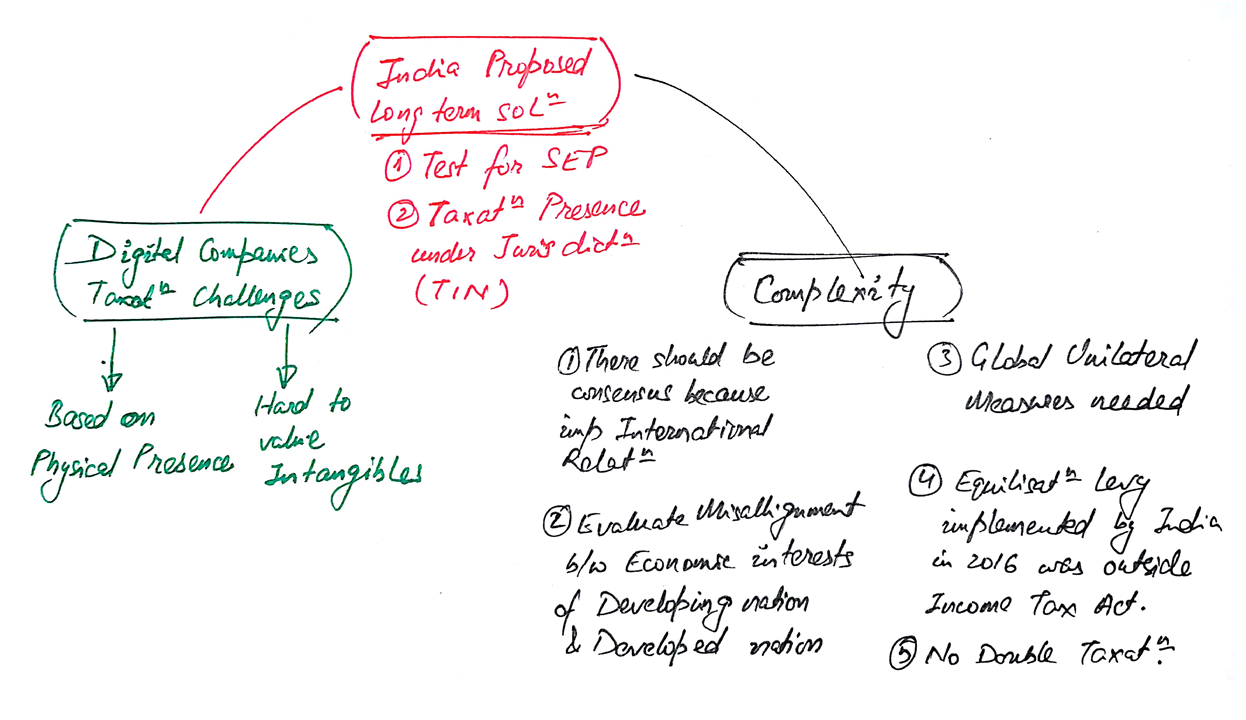 India Proposed
Long term solⁿ
① Test for SEP
② Taxatⁿ Presence
under Jurisdictⁿ
(TIN)
Digital Companies
Taxatⁿ Challenges
Based on
Physical Presence
Hard to
value
Intangibles
Complexity
① There should be
consensus because
imp International
Relatⁿ
② Evaluate Misallignment
b/w Economic interests
of Developing nation
& Developed nation
③ Global Unilateral
Measures needed
④ Equilisatⁿ Levy
implemented by India
in 2016 was outside
Income Tax Act.
⑤ No Double Taxatⁿ.